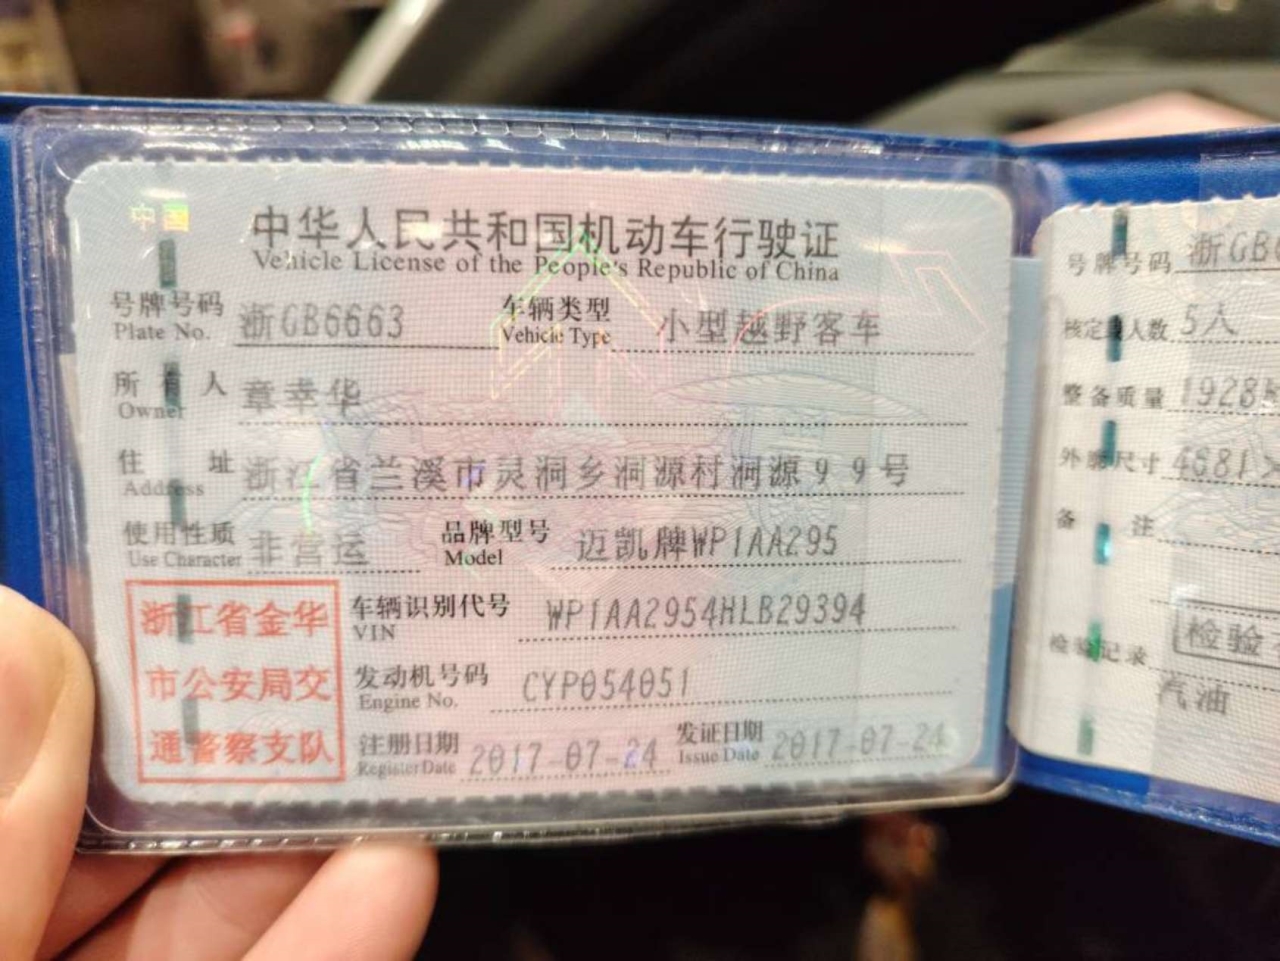 中国
中华人民共和国机动车行驶证
Vehicle License of the People's Republic of China
号牌号码 浙GB6663 车辆类型 小型越野客车
Plate No. Vehicle Type
所有人 章幸华
Owner
住址 浙江省兰溪市灵洞乡洞源村洞源99号
Address
使用性质 非营运 品牌型号 迈凯牌WP1AA295
Use Character Model
浙江省金华
市公安局交
通警察支队
车辆识别代号 WP1AA2954HLB29394
VIN
发动机号码 CYP054051
Engine No.
注册日期 2017-07-24 发证日期 2017-07-24
Register Date Issue Date
号牌号码 浙GB
核定载人数 5人
整备质量 1928
外廓尺寸 4681
备注
检验记录 检验
汽油